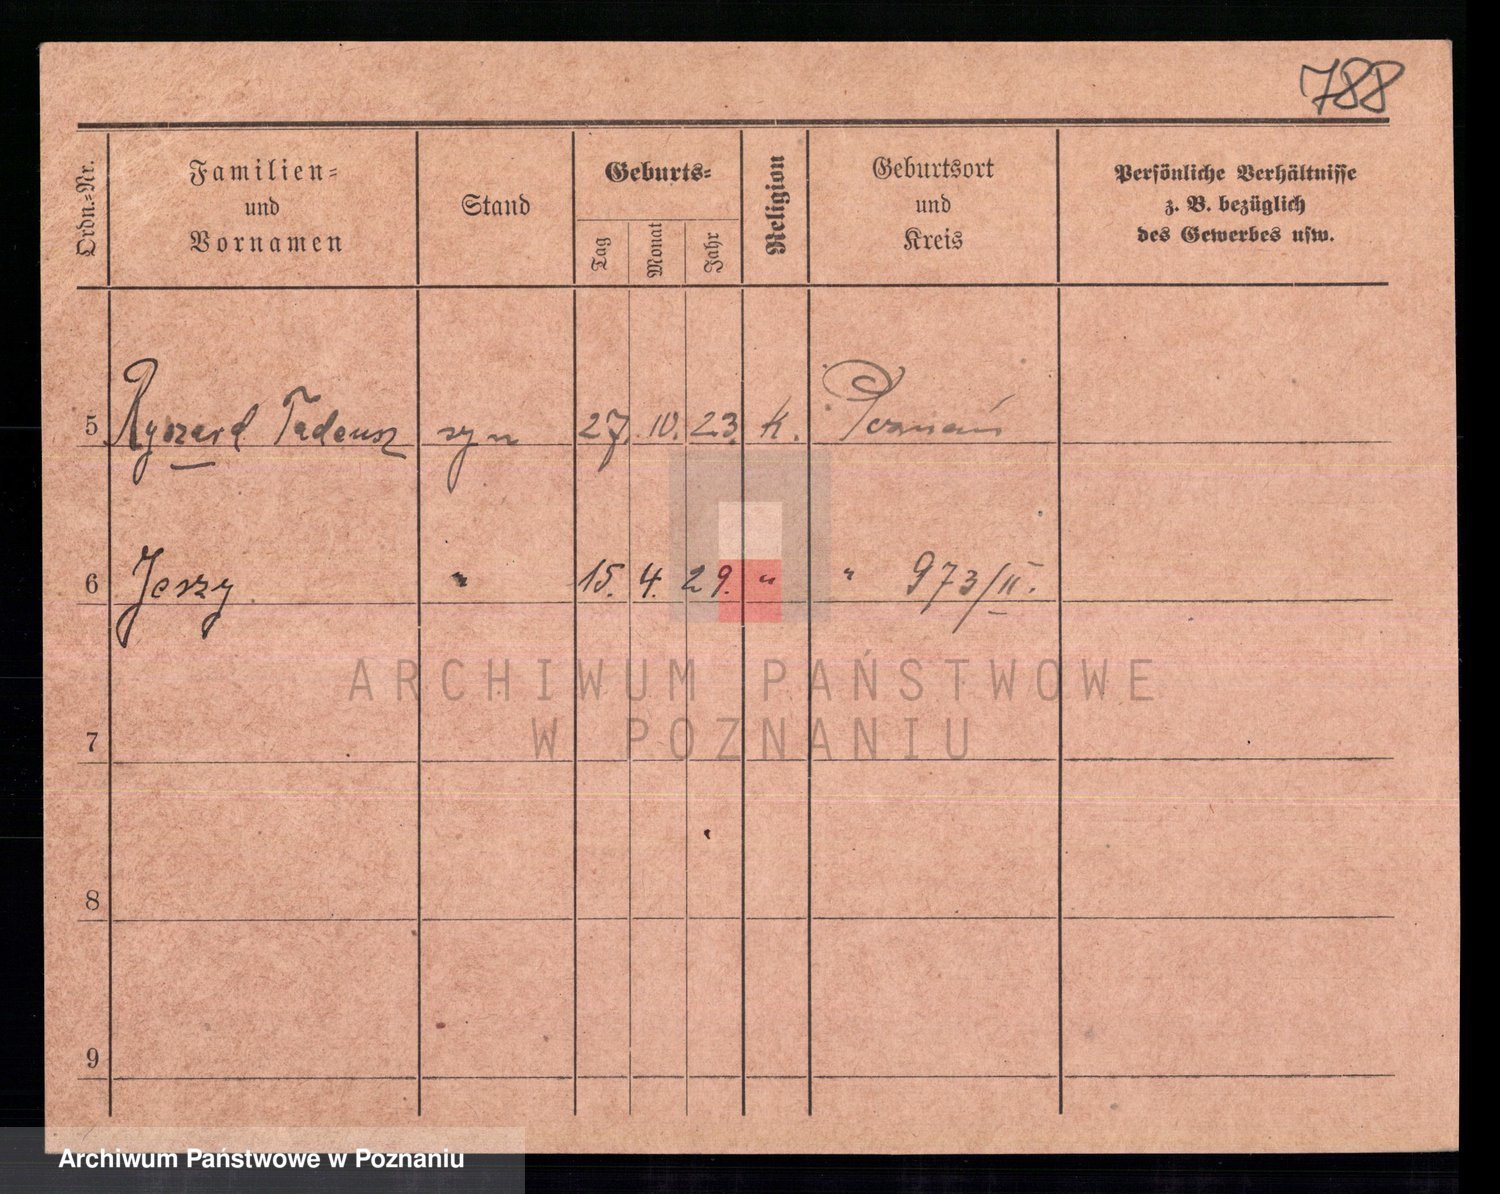 788
Ordn.-Nr.
Familien-
und
Vornamen
Stand
Geburts-
Tag
Monat
Jahr
Religion
Geburtsort
und
Kreis
Persönliche Verhältnisse
z. B. bezüglich
des Gewerbes usw.
5 Ryszard Tadeusz syn 27. 10. 23. k. Poznań
6 Jerzy " 15. 4. 29. " " 973/II.
7
8
9
ARCHIWUM PAŃSTWOWE
W POZNANIU
Archiwum Państwowe w Poznaniu